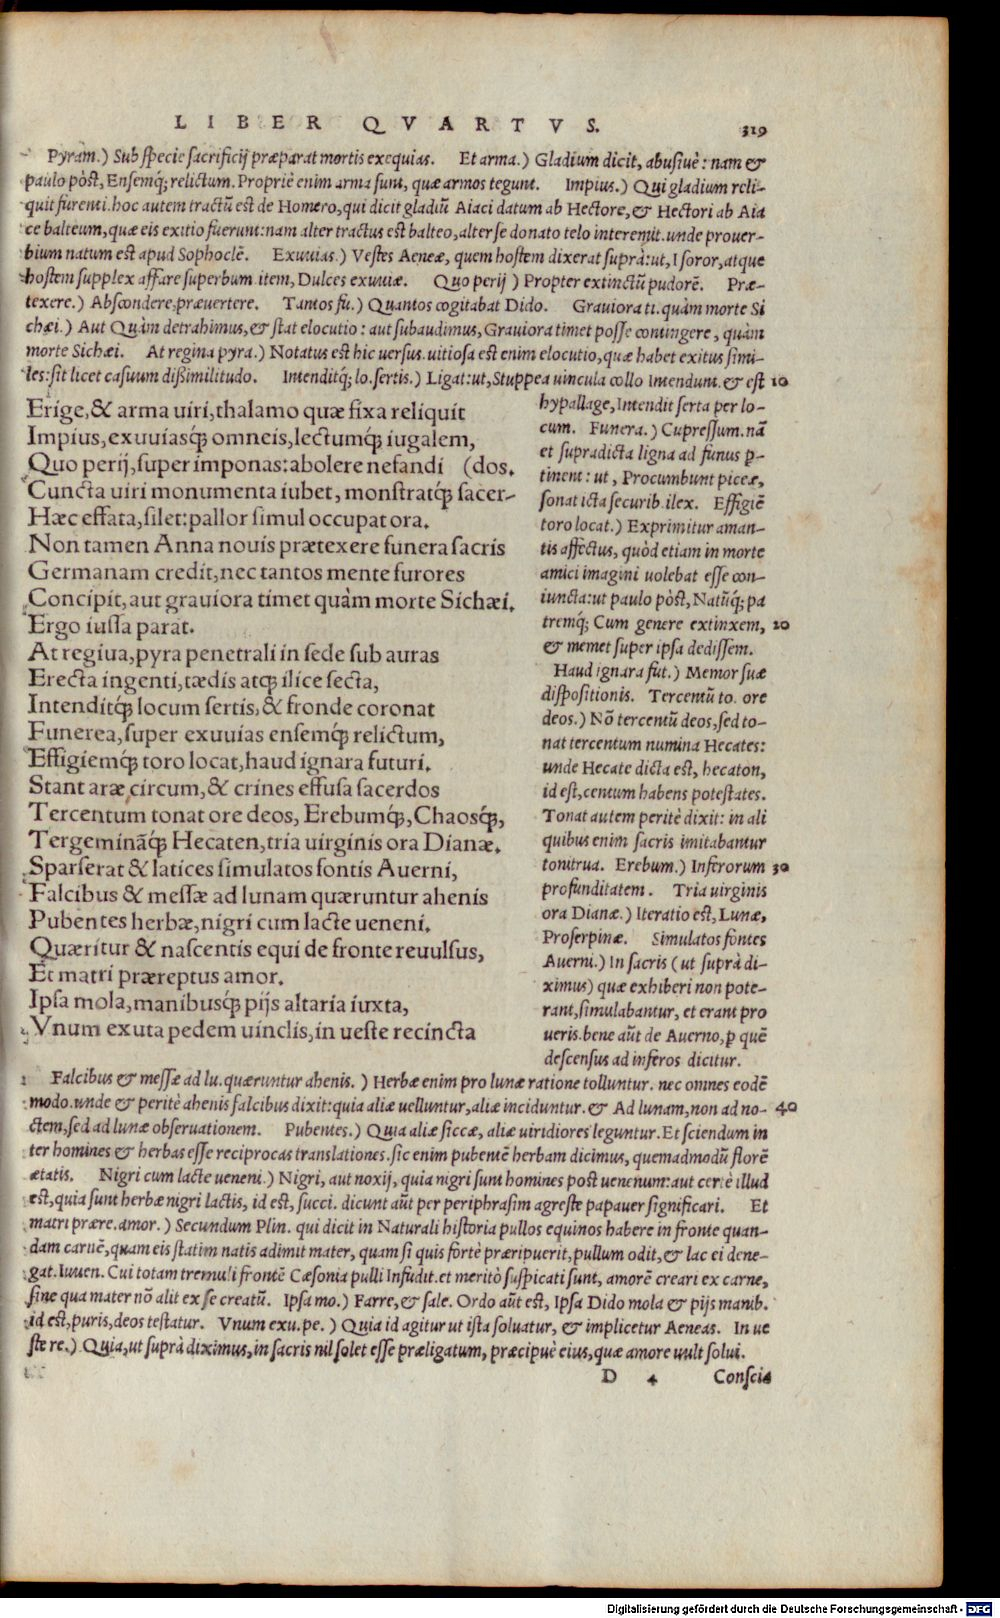 LIBER QVARTVS. 319
Pyram.) Sub specie sacrificij præparat mortis exequias. Et arma.) Gladium dicit, abusiuè: nam &
paulo pòst, Ensemq́; relictum. Propriè enim arma sunt, quæ armos tegunt. Impius.) Qui gladium reli-
quit furenti. hoc autem tractū est de Homero, qui dicit gladiū Aiaci datum ab Hectore, & Hectori ab Aia
ce balteum, quæ eis exitio fuerunt: nam alter tractus est balteo, alter se donato telo interemit. unde prouer-
bium natum est apud Sophoclē. Exuuias.) Vestes Aeneæ, quem hostem dixerat suprà: ut, I soror, atque
hostem supplex affare superbum. item, Dulces exuuiæ. Quo perij ) Propter extinctū pudorē. Præ-
texere.) Abscondere, præuertere. Tantos fu.) Quantos cogitabat Dido. Grauiora ti. quàm morte Si
chæi.) Aut Quàm detrahimus, & stat elocutio: aut subaudimus, Grauiora timet posse contingere, quàm
morte Sichæi. At regina pyra.) Notatus est hic uersus. uitiosa est enim elocutio, quæ habet exitus simi-
les: sit licet casuum dißimilitudo. Intenditq́; lo. sertis.) Ligat: ut, Stuppea uincula collo Intendunt. & est 10
Erige, & arma uiri, thalamo quæ fixa reliquit
Impius, exuuiasq́; omneis, lectumq́; iugalem,
Quo perij, super imponas: abolere nefandi (dos.
Cuncta uiri monumenta iubet, monstratq́; sacer-
Hæc effata, silet: pallor simul occupat ora.
Non tamen Anna nouis prætexere funera sacris
Germanam credit, nec tantos mente furores
Concipit, aut grauiora timet quàm morte Sichæi.
Ergo iussa parat.
At regiua, pyra penetrali in sede sub auras
Erecta ingenti, tædis atq; ilice secta,
Intenditq́; locum sertis, & fronde coronat
Funerea, super exuuias ensemq́; relictum,
Effigiemq́; toro locat, haud ignara futuri.
Stant aræ circum, & crines effusa sacerdos
Tercentum tonat ore deos, Erebumq́;, Chaosq́;,
Tergeminãq́; Hecaten, tria uirginis ora Dianæ.
Sparserat & latices simulatos fontis Auerni,
Falcibus & messæ ad lunam quæruntur ahenis
Pubentes herbæ, nigri cum lacte ueneni.
Quæritur & nascentis equi de fronte reuulsus,
Et matri præreptus amor.
Ipsa mola, manibusq́; pijs altaria iuxta,
Vnum exuta pedem uinclis, in ueste recincta
hypallage, Intendit serta per lo-
cum. Funera.) Cupressum. nā
et supradicta ligna ad funus p-
tinent: ut, Procumbunt piceæ,
sonat icta securib. ilex. Effigiē
toro locat.) Exprimitur aman-
tis affectus, quòd etiam in morte
amici imagini uolebat esse con-
iuncta: ut paulo pòst, Natūq́; pa
tremq́; Cum genere extinxem, 20
& memet super ipsa dedissem.
Haud ignara fut.) Memor suæ
dispositionis. Tercentū to. ore
deos.) Nō tercentū deos, sed to-
nat tercentum numina Hecates:
unde Hecate dicta est, hecaton,
id est, centum habens potestates.
Tonat autem peritè dixit: in ali
quibus enim sacris imitabantur
tonitrua. Erebum.) Inferorum 30
profunditatem. Tria uirginis
ora Dianæ.) Iteratio est, Lunæ,
Proserpinæ. Simulatos fontes
Auerni.) In sacris (ut suprà di-
ximus) quæ exhiberi non pote-
rant, simulabantur, et erant pro
ueris. bene aūt de Auerno, p quē
descensus ad inferos dicitur.
Falcibus & messæ ad lu. quæruntur ahenis. ) Herbæ enim pro lunæ ratione tolluntur. nec omnes eodē
modo. unde & peritè ahenis falcibus dixit: quia aliæ uelluntur, aliæ inciduntur. & Ad lunam, non ad no- 40
ctem, sed ad lunæ obseruationem. Pubentes.) Quia aliæ siccæ, aliæ uiridiores leguntur. Et sciendum in
ter homines & herbas esse reciprocas translationes. sic enim pubentē herbam dicimus, quemadmodū florē
ætatis. Nigri cum lacte ueneni.) Nigri, aut noxij, quia nigri sunt homines post uenenum: aut certè illud
est, quia sunt herbæ nigri lactis, id est, succi. dicunt aūt per periphrasim agreste papauer significari. Et
matri prære. amor. ) Secundum Plin. qui dicit in Naturali historia pullos equinos habere in fronte quan-
dam carnē, quam eis statim natis adimit mater, quam si quis fortè præripuerit, pullum odit, & lac ei dene-
gat. Iuuen. Cui totam tremuli frontē Cæsonia pulli Infudit. et meritò suspicati sunt, amorē creari ex carne,
sine qua mater nō alit ex se creatū. Ipsa mo.) Farre, & sale. Ordo aūt est, Ipsa Dido mola & pijs manib.
id est, puris, deos testatur. Vnum exu. pe. ) Quia id agitur ut ista soluatur, & implicetur Aeneas. In ue
ste re.) Quia, ut suprà diximus, in sacris nil solet esse præligatum, præcipuè eius, quæ amore uult solui.
D 4 Conscia
Digitalisierung gefördert durch die Deutsche Forschungsgemeinschaft - DFG